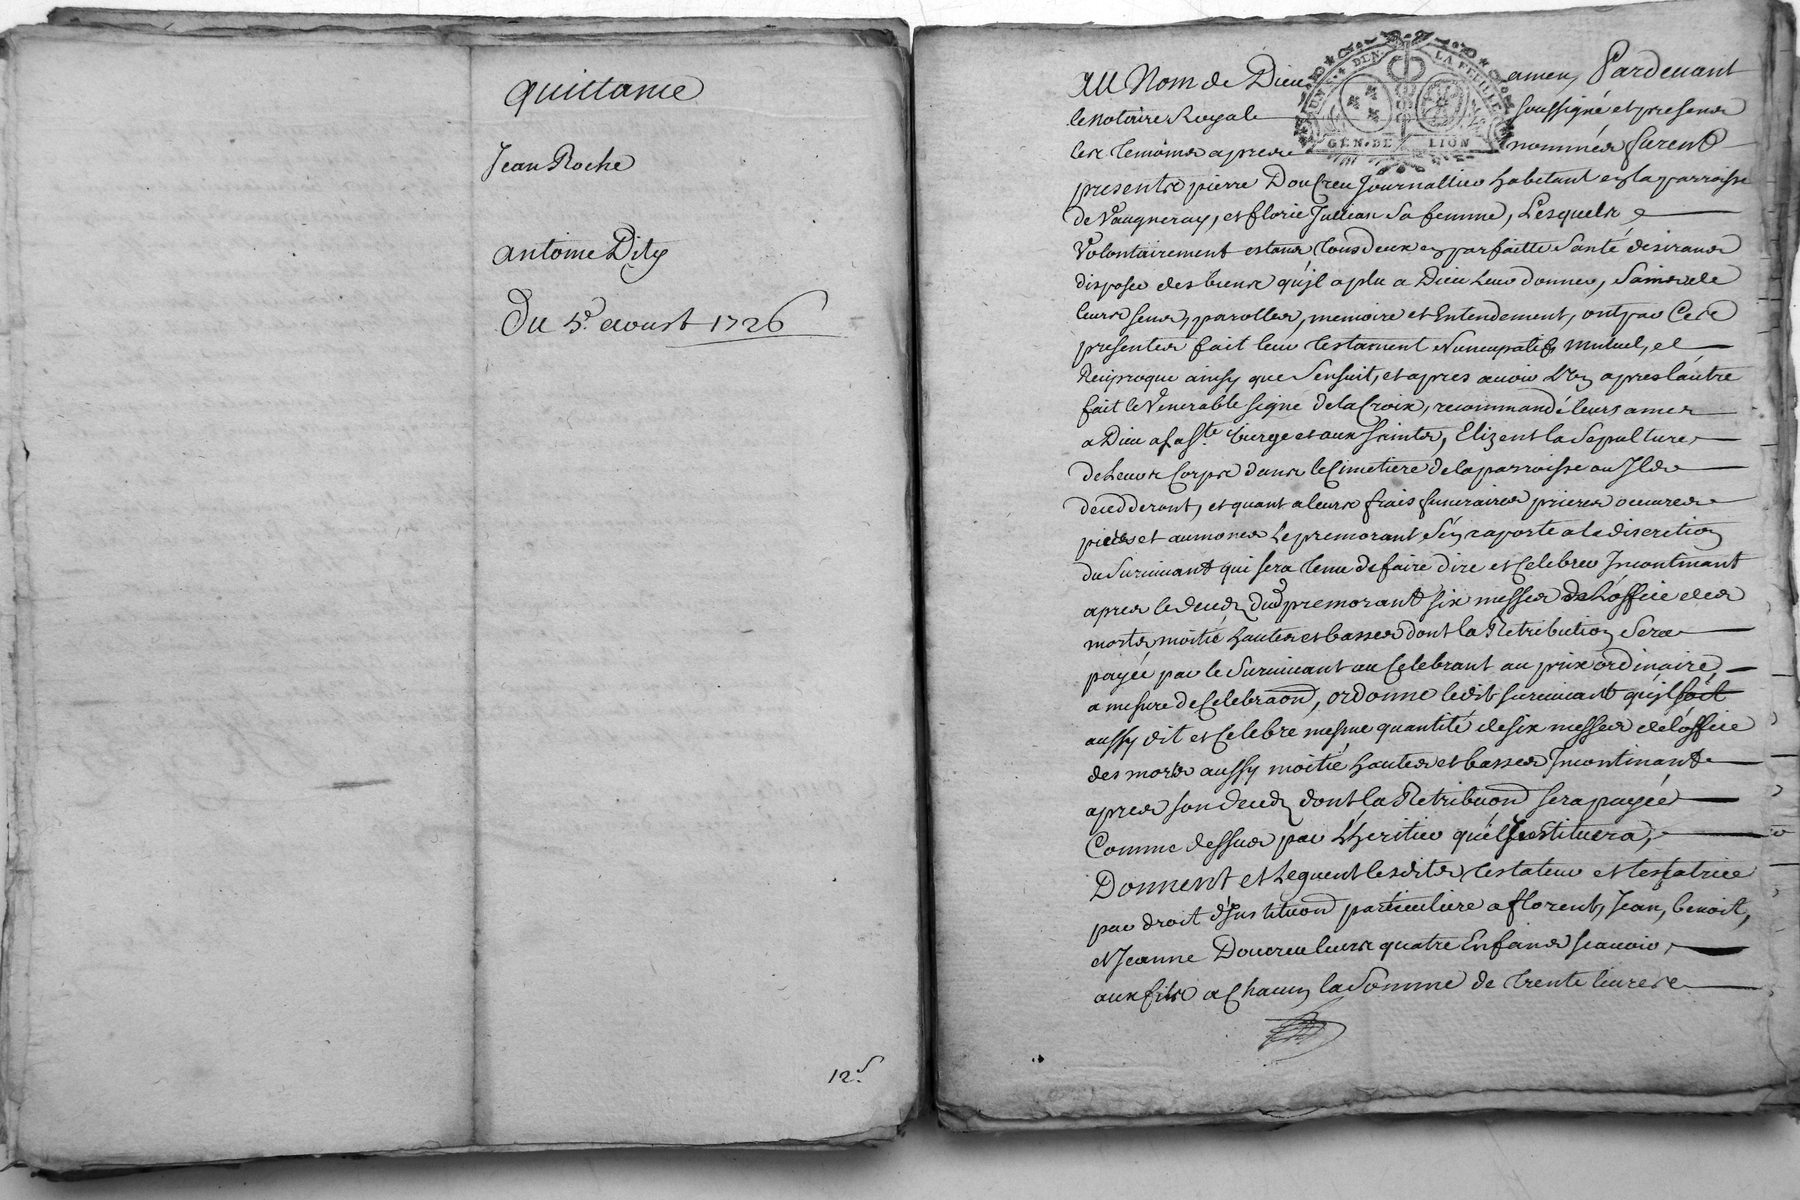 quittance
Jean Roche
antoine Pity
Du 5e. aoust 1726
12s
UN. DEN. LA FEUILLE
GEN. DE LION
Au Nom de Dieu amen, Pardeuant
le notaire Royale soussigné et presens
les temoins apres nommés furent
presents pierre Doucreu Journallier habitant en la parroisse
de Vaugneray, et florie Jullean Sa femme, Lesquels
Volontairement estans tous deux en parfaitte Santé desirans
disposer des biens qu'jl a plu a Dieu leur donner, Sains de
leurs sens, parolles, memoire et Entendement, ont par Ces
presentes fait leur testament Nuncupatif, mutuel, et
Reciproque ainsy que Sensuit, et apres auoir L'un apres l'autre
fait le Venerable signe de la Croix, recommandé leurs ames
a Dieu a la ste. Vierge et aux saints, Elizent la Sepulture
de leurs Corps dans le Cimetiere de la parroisse ou Jls
decedderont, et quant a leurs frais funeraires prieres oeuures
pies et aumones Le premorant s'en raporte a la discretion
du Suruiuant qui sera tenu de faire dire et Celebrer Incontinant
apres le deces dud premorant six messes de L'office des
morts moitié hautes et basses dont la Retribution Sera
payée par le Suruiuant au Celebrant au prix ordinaire
a mesure de Celebraõn, ordonne ledit suruiuant qu'jl soit
aussy dit et Celebre mesme quantité de six messes de l'office
des morts aussy moitié hautes et basses Incontinant
apres son deces dont la Retribuõn sera payée
Comme dessus par L'heritier qu'il Instituera,
Donnent et Leguent lesdits testateur et testatrice
par droit d'Instituõn particuliere a florent, Jean, benoit,
et Jeanne Doucreu leurs quatre Enfans scauoir,
aux fils a Chacun la Somme de trente liures